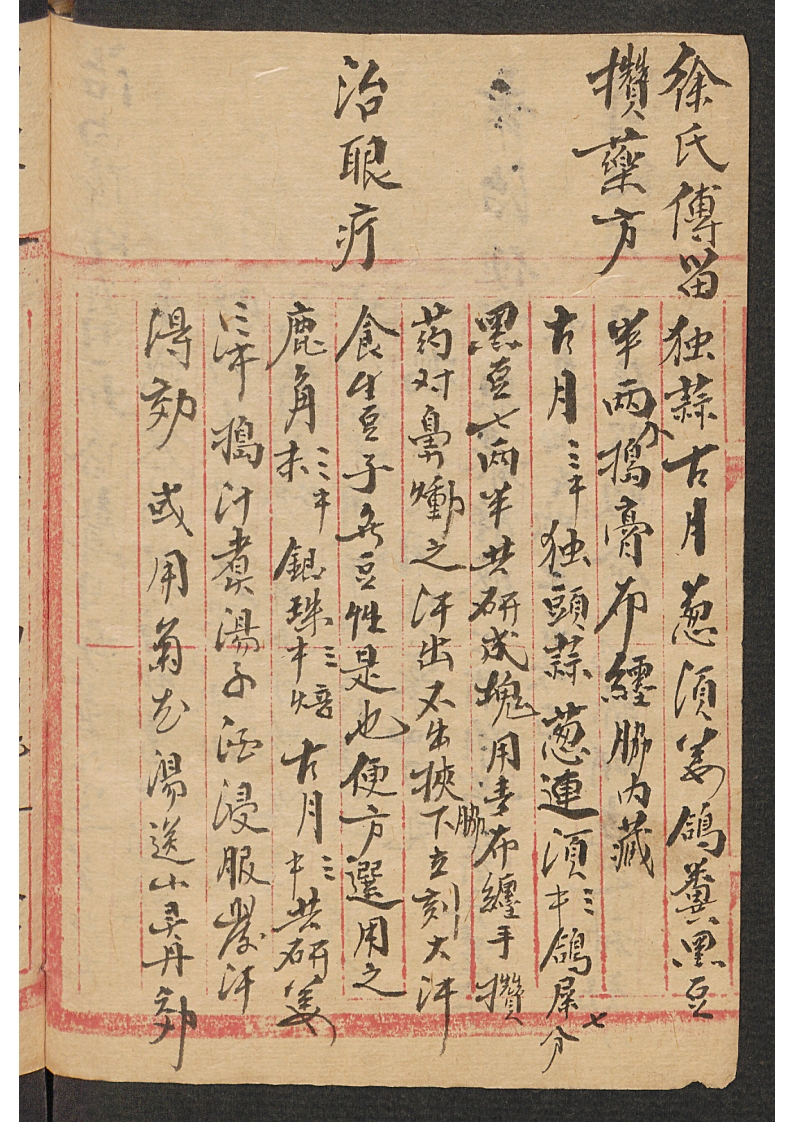 徐氏傅留
攢藥方
独蒜古月葱須姜鴿糞黑豆
半兩分搗膏布纏胁内藏
古月三牛独頭蒜葱連須三牛鴿屎七分
黑豆七兩半共研成塊用青布纏手攢
药对鼻嗅之汗出不出挾胁下立刻大汗
食生豆子無豆性是也便方選用之
治眼疔
鹿角末三牛銀珠三牛焙古月三牛共研姜
三牛搗汁煮湯子酒浸服發汗
得効 或用菊花湯送小灵丹効